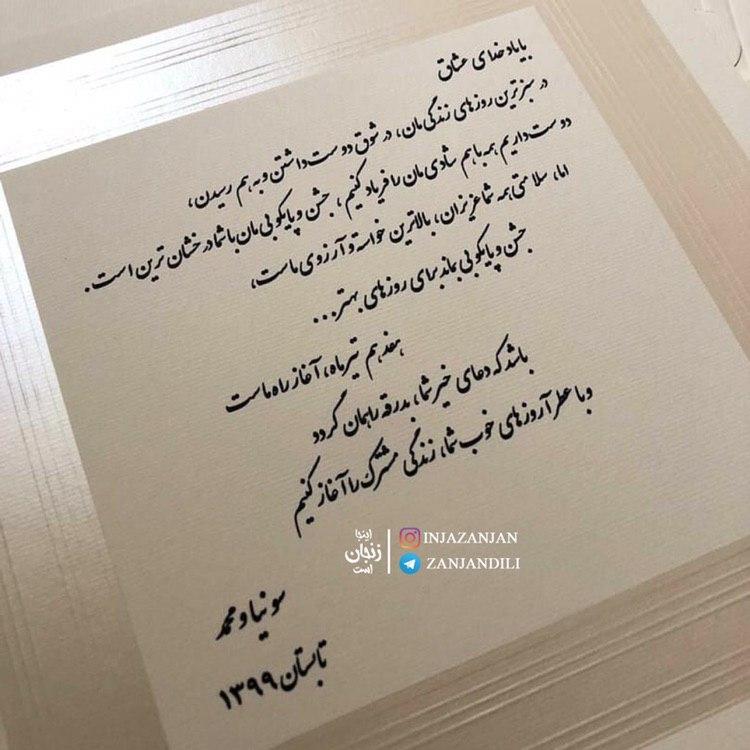 با یاد خدای عشاق
در سبزترین روزهای زندگی مان، در شوق دوست داشتن و به هم رسیدن،
دوست داریم همه با هم شادی مان را فریاد کنیم، جشن و پایکوبی مان با شما درخشان ترین است.
اما، سلامتی همه شما عزیزان، بالاترین خواسته و آرزوی ماست،
جشن و پایکوبی بماند برای روزهای بهتر...
هفدهم تیرماه، آغاز راه ماست
باشد که دعای خیر شما، بدرقه راهمان گردد
و با عطر آرزوهای خوب شما، زندگی مشترک را آغاز کنیم
اینجا
زنجان
است
INJAZANJAN
ZANJANDILI
سونیا و محمد
تابستان ۱۳۹۹